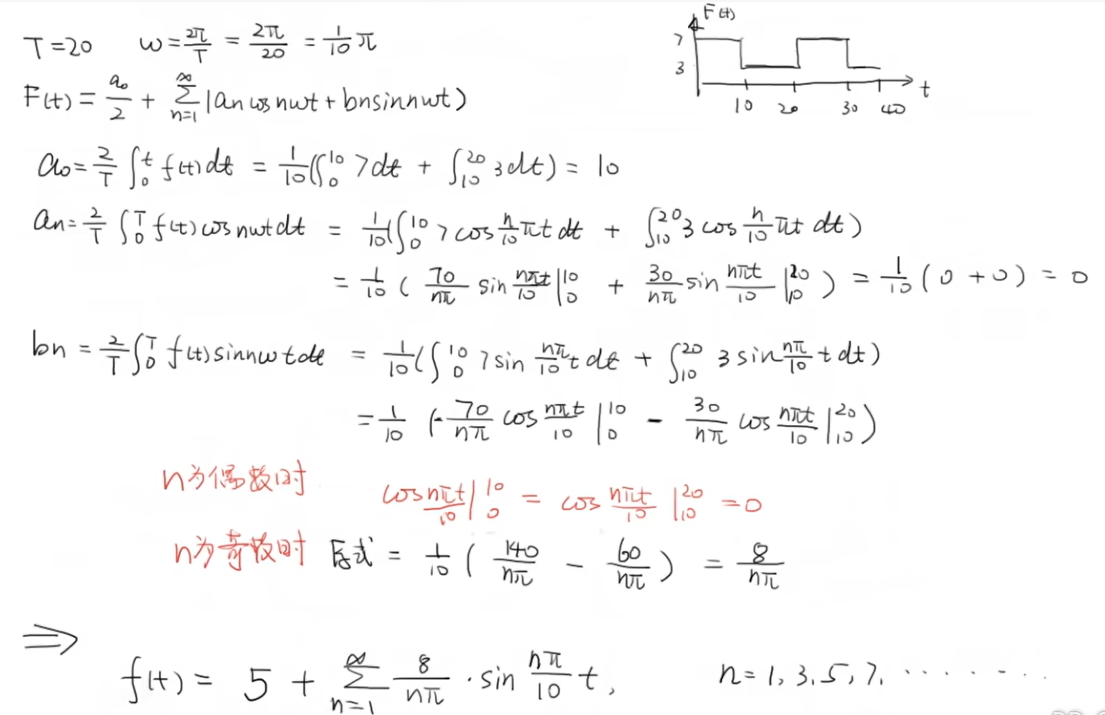 T=20 ω=2π/T = 2π/20 = 1/10 π
F(t) = a₀/2 + ∑_{n=1}^{∞} (an cos nωt + bn sin nωt)
F(t)
7
3
10 20 30 40
t
a₀ = 2/T ∫₀ᵗ f(t) dt = 1/10 (∫₀¹⁰ 7dt + ∫₁₀²⁰ 3dt) = 10
an = 2/T ∫₀ᵀ f(t) cos nωt dt = 1/10 (∫₀¹⁰ 7 cos n/10 πt dt + ∫₁₀²⁰ 3 cos n/10 πt dt)
= 1/10 ( 70/nπ sin nπt/10 |₀¹⁰ + 30/nπ sin nπt/10 |₁₀²⁰ ) = 1/10 (0 + 0) = 0
bn = 2/T ∫₀ᵀ f(t) sin nωt dt = 1/10 (∫₀¹⁰ 7 sin nπ/10 t dt + ∫₁₀²⁰ 3 sin nπ/10 t dt)
= 1/10 (-70/nπ cos nπt/10 |₀¹⁰ - 30/nπ cos nπt/10 |₁₀²⁰)
n为偶数时 cos nπt/10 |₀¹⁰ = cos nπt/10 |₁₀²⁰ = 0
n为奇数时 原式 = 1/10 ( 140/nπ - 60/nπ ) = 8/nπ
⇒
f(t) = 5 + ∑_{n=1}^{∞} 8/nπ · sin nπ/10 t, n=1,3,5,7, ......